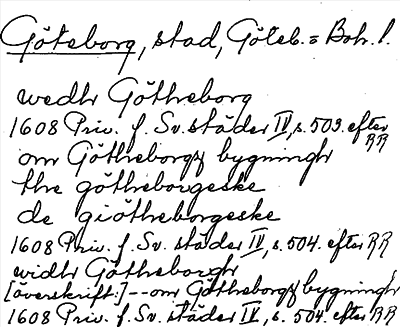 Göteborg, stad, Göteb. = Boh. l.
wedhr Götheborg
1608 Priv. f. Sv. städer IV, s. 503. efter RR
om Götheborgz bygningh
the götheborgeske
de giötheborgeske
1608 Priv. f. Sv. städer IV, s. 504. efter RR
widhr Götheborgh
[överskrift:] -- om Götheborgz bygningh
1608 Priv. f. Sv. städer IV, s. 504. efter RR